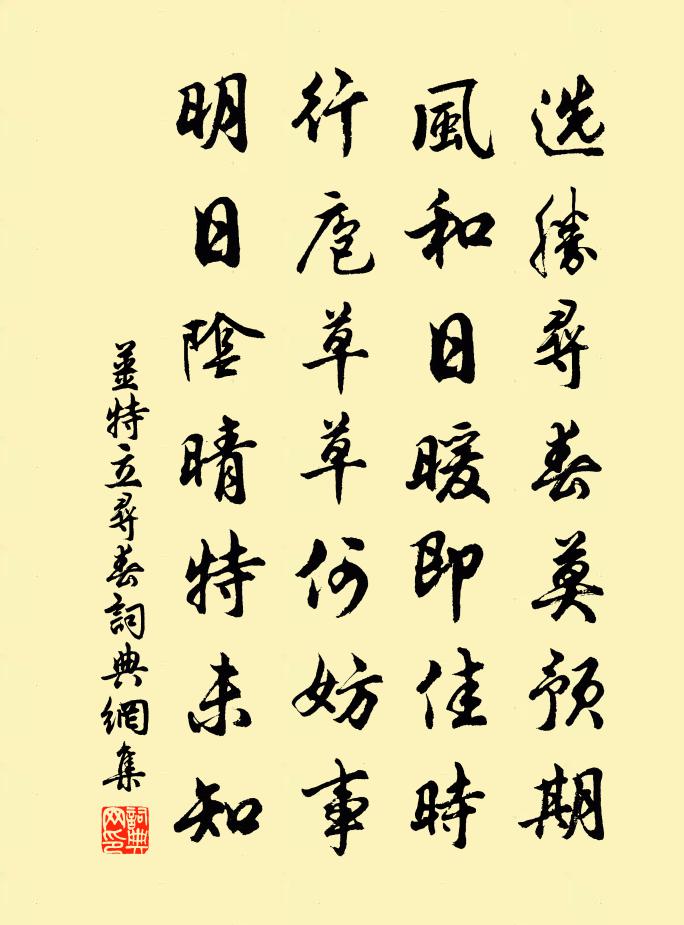 选勝尋春莫預期
風和日暖即佳時
行庖草草何妨事
明日陰晴特未知
姜特立尋春詞典網集
詞典网印